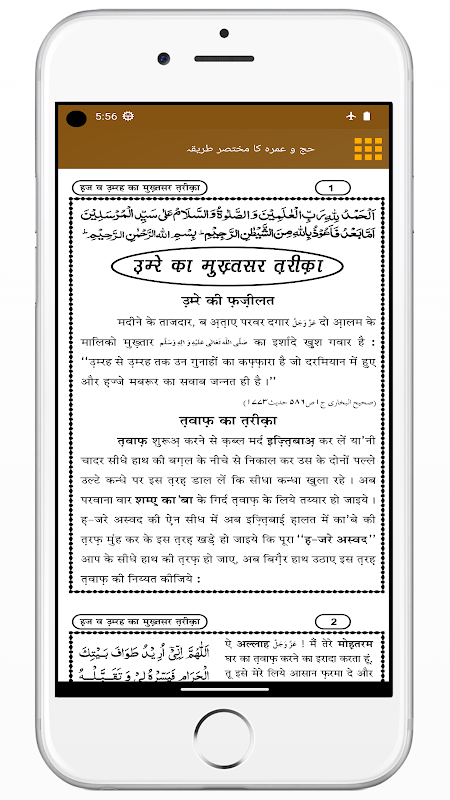 5:56
حج و عمرہ کا مختصر طریقہ
हज व उ़म्रह का मुख़्तसर त़रीक़ा
1
اَلْحَمْدُ لِلّٰهِ رَبِّ الْعٰلَمِيْنَ وَالصَّلٰوةُ وَالسَّلَامُ عَلٰى سَيِّدِ الْمُرْسَلِيْنَ
اَمَّا بَعْدُ فَاَعُوْذُ بِاللّٰهِ مِنَ الشَّيْطٰنِ الرَّجِيْمِ ؕ بِسْمِ اللّٰهِ الرَّحْمٰنِ الرَّحِيْمِ ؕ
उ़म्रे का मुख़्तसर त़रीक़ा
उ़म्रे की फ़ज़ीलत
मदीने के ताजदार, ब अ़त़ाए परवर दगार عَزَّوَجَلَّ दो आ़लम के
मालिको मुख़्तार صَلَّى اللهُ تَعَالٰى عَلَيْهِ وَاٰلِهٖ وَسَلَّم का इर्शादे खुश गवार है :
‘‘उ़म्रह से उ़म्रह तक उन गुनाहों का कफ़्फ़ारा है जो दरमियान में हुए
और ह़ज्जे मबरूर का सवाब जन्नत ही है ।’’
(صحيح البخارى ج١ ص٥٨٦ حديث١٧٧٣)
त़वाफ़ का त़रीक़ा
त़वाफ़ शुरूअ़ करने से क़ब्ल मर्द इज़्त़िबाअ़ कर लें या'नी
चादर सीधे हाथ की बग़ल के नीचे से निकाल कर उस के दोनों पल्ले
उल्टे कन्धे पर इस त़रह़ डाल लें कि सीधा कन्धा खुला रहे । अब
परवाना वार शम्ए़ का'बा के गिर्द त़वाफ़ के लिये तय्यार हो जाइये ।
ह़-जरे अस्वद की ऐ़न सीध में अब इज़्त़िबाई़ ह़ालत में का'बे की
त़रफ़ मुंह कर के इस त़रह़ खड़े हो जाइये कि पूरा ‘‘ह़-जरे अस्वद’’
आप के सीधे हाथ की त़रफ़ हो जाए, अब बिग़ैर हाथ उठाए इस त़रह़
त़वाफ़ की निय्यत कीजिये :
हज व उ़म्रह का मुख़्तसर त़रीक़ा
2
اَللّٰهُمَّ اِنِّيْٓ اُرِيْدُ طَوَافَ بَيْتِكَ
الْحَرَامِ فَيَسِّرْهُ لِيْ وَتَقَبَّلْهُ
ऐ अल्लाह عَزَّوَجَلَّ ! मैं तेरे मोह़तरम
घर का त़वाफ़ करने का इरादा करता हूं,
तू इसे मेरे लिये आसान फ़रमा दे और